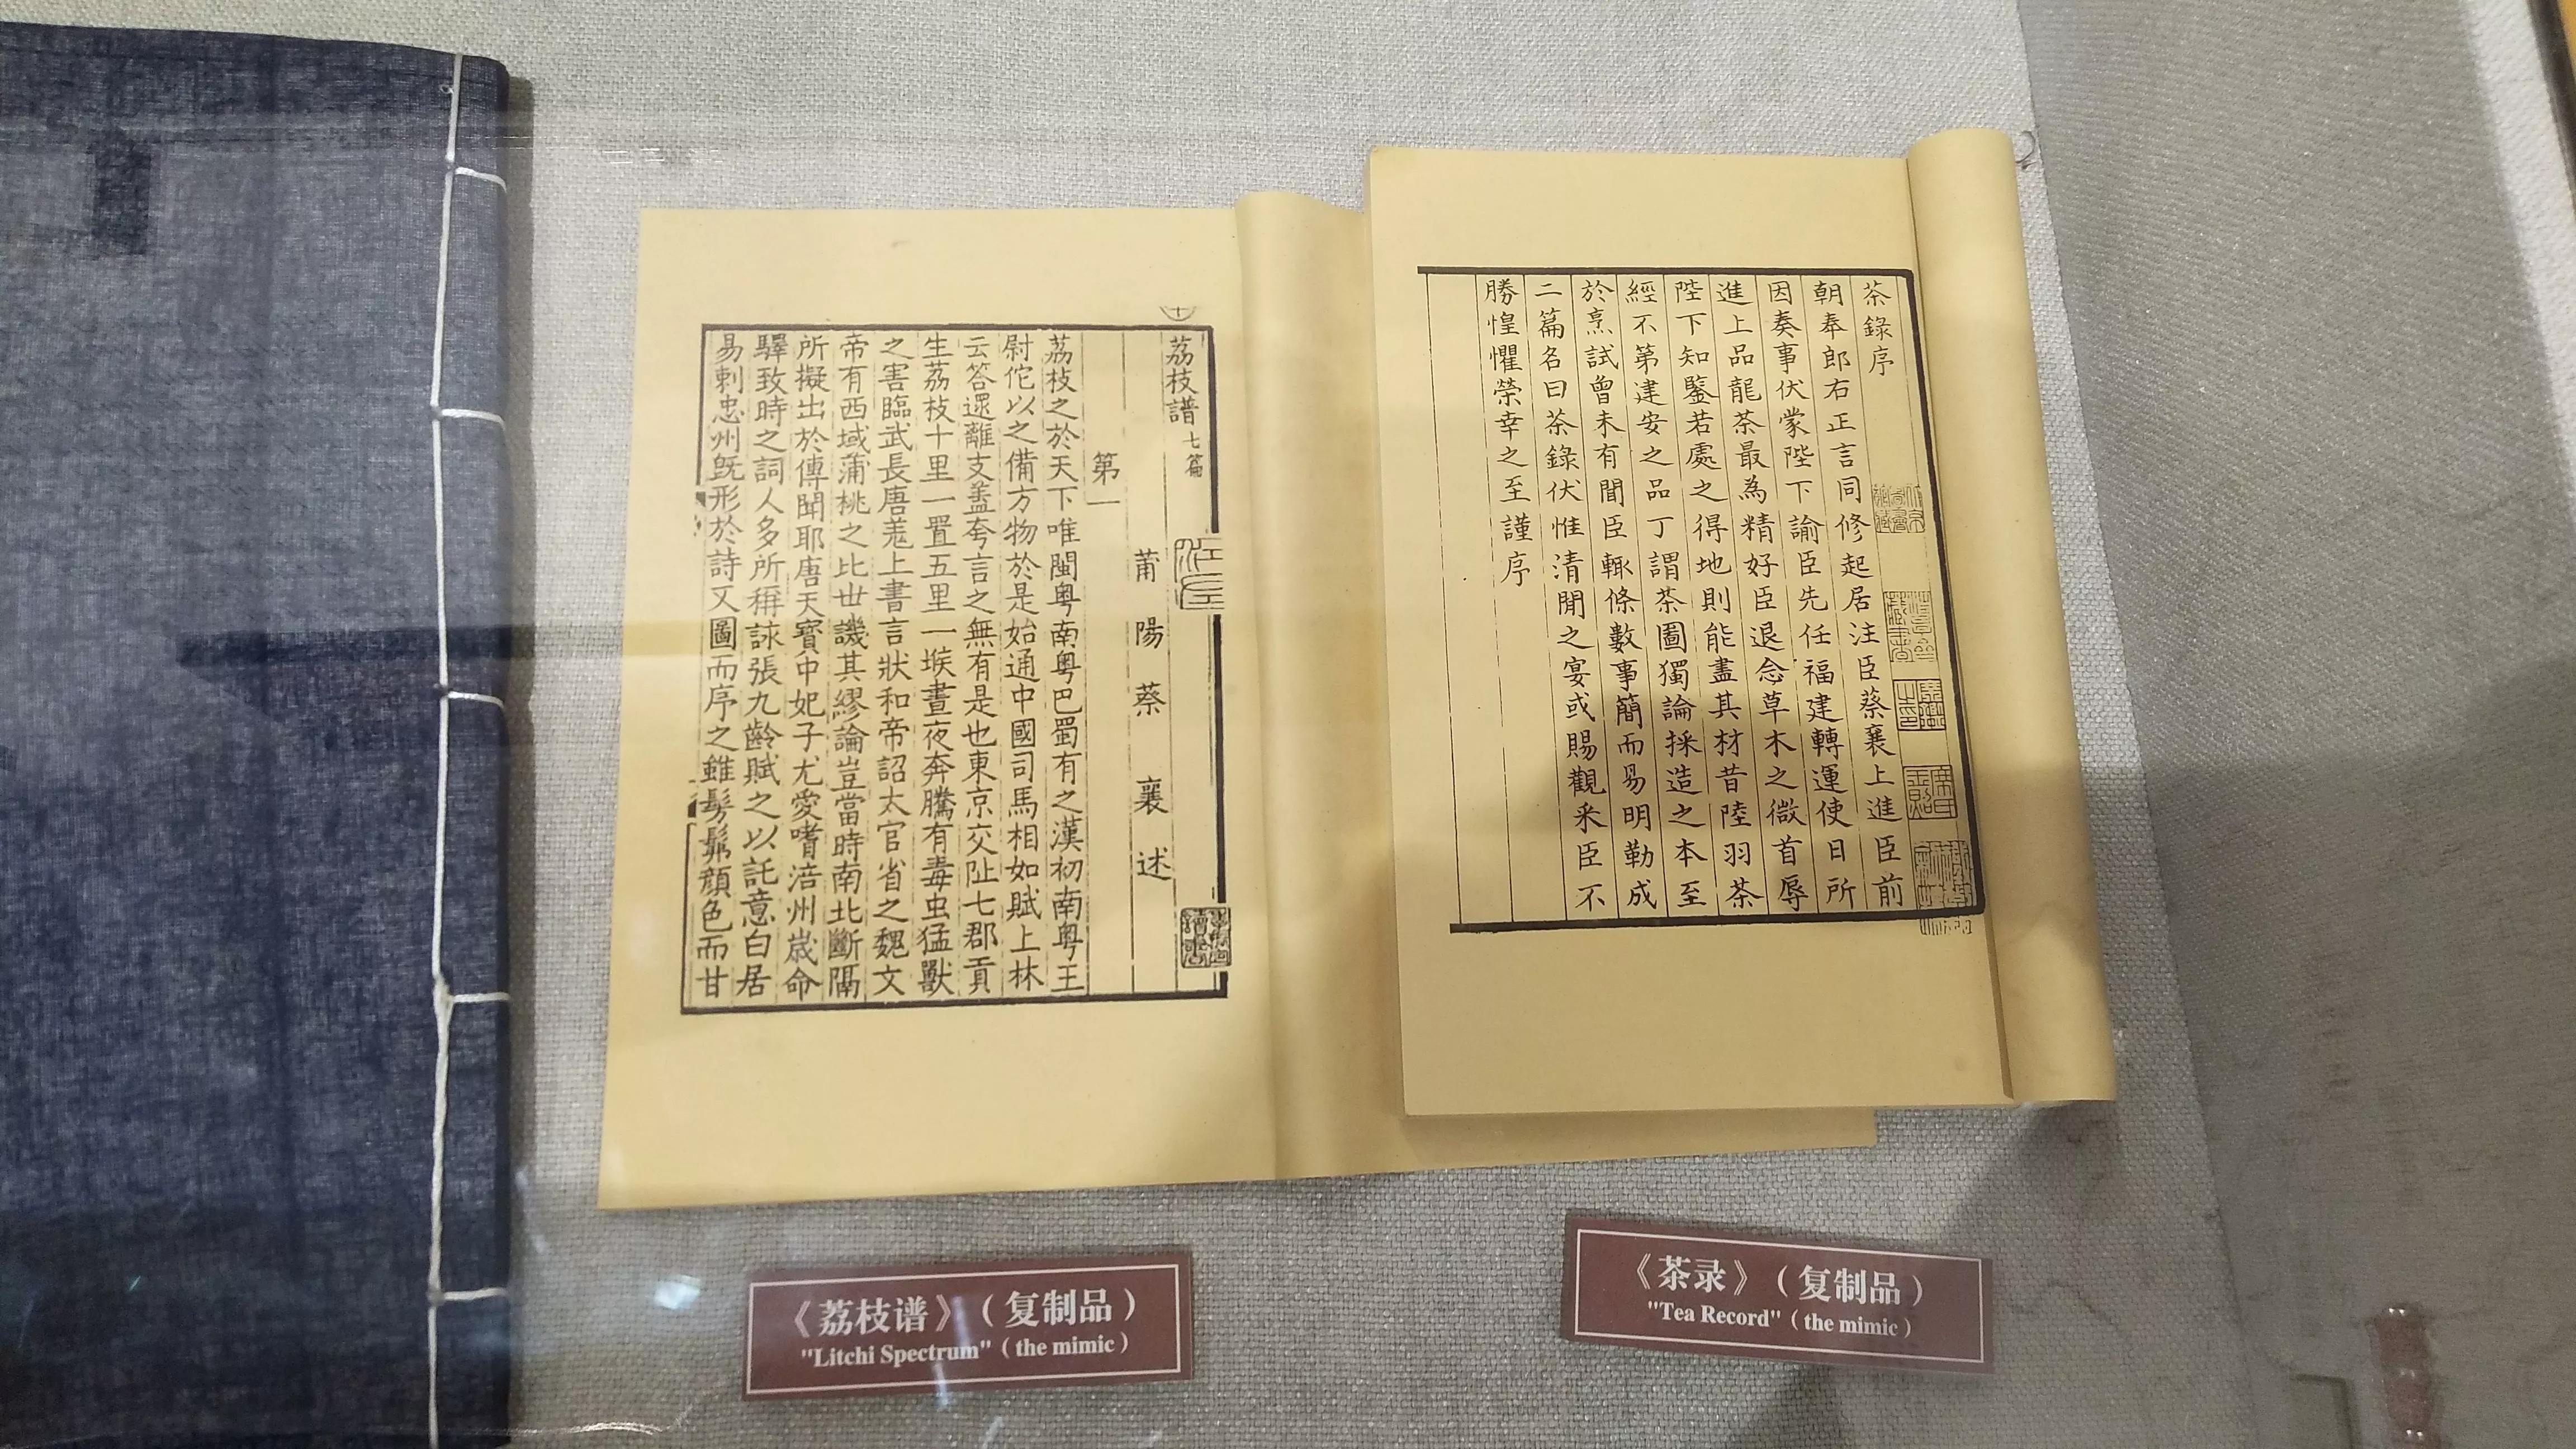 茶錄序
朝奉郎右正言同修起居注臣蔡襄上進臣前
因奏事伏蒙陛下諭臣先任福建轉運使日所
進上品龍茶最為精好臣退念草木之微首辱
陛下知鑒若處之得地則能盡其材昔陸羽茶
經不第建安之品丁謂茶圖獨論採造之本至
於烹試曾未有聞臣輒條數事簡而易明勒成
二篇名曰茶錄伏惟清閒之宴或賜觀釆臣不
勝惶懼榮幸之至謹序
荔枝譜七篇
莆陽蔡襄述
第一
荔枝之於天下唯閩粤南粤巴蜀有之漢初南粤王
尉佗以之備方物於是始通中國司馬相如賦上林
云答遝離支盖夸言之無有是也東京交阯七郡貢
生荔枝十里一置五里一堠晝夜奔騰有毒虫猛獸
之害臨武長唐羌上書言狀和帝詔太官省之魏文
帝有西域蒲桃之比世譏其繆論豈當時南北斷隔
所擬出於傳聞耶唐天寶中妃子尤愛嗜涪州歲命
驛致時之詞人多所稱詠張九齡賦之以託意白居
易刺忠州既形於詩又圖而序之雖髣髴顔色而甘
《荔枝谱》（复制品）
"Litchi Spectrum"（the mimic）
《茶录》（复制品）
"Tea Record"（the mimic）